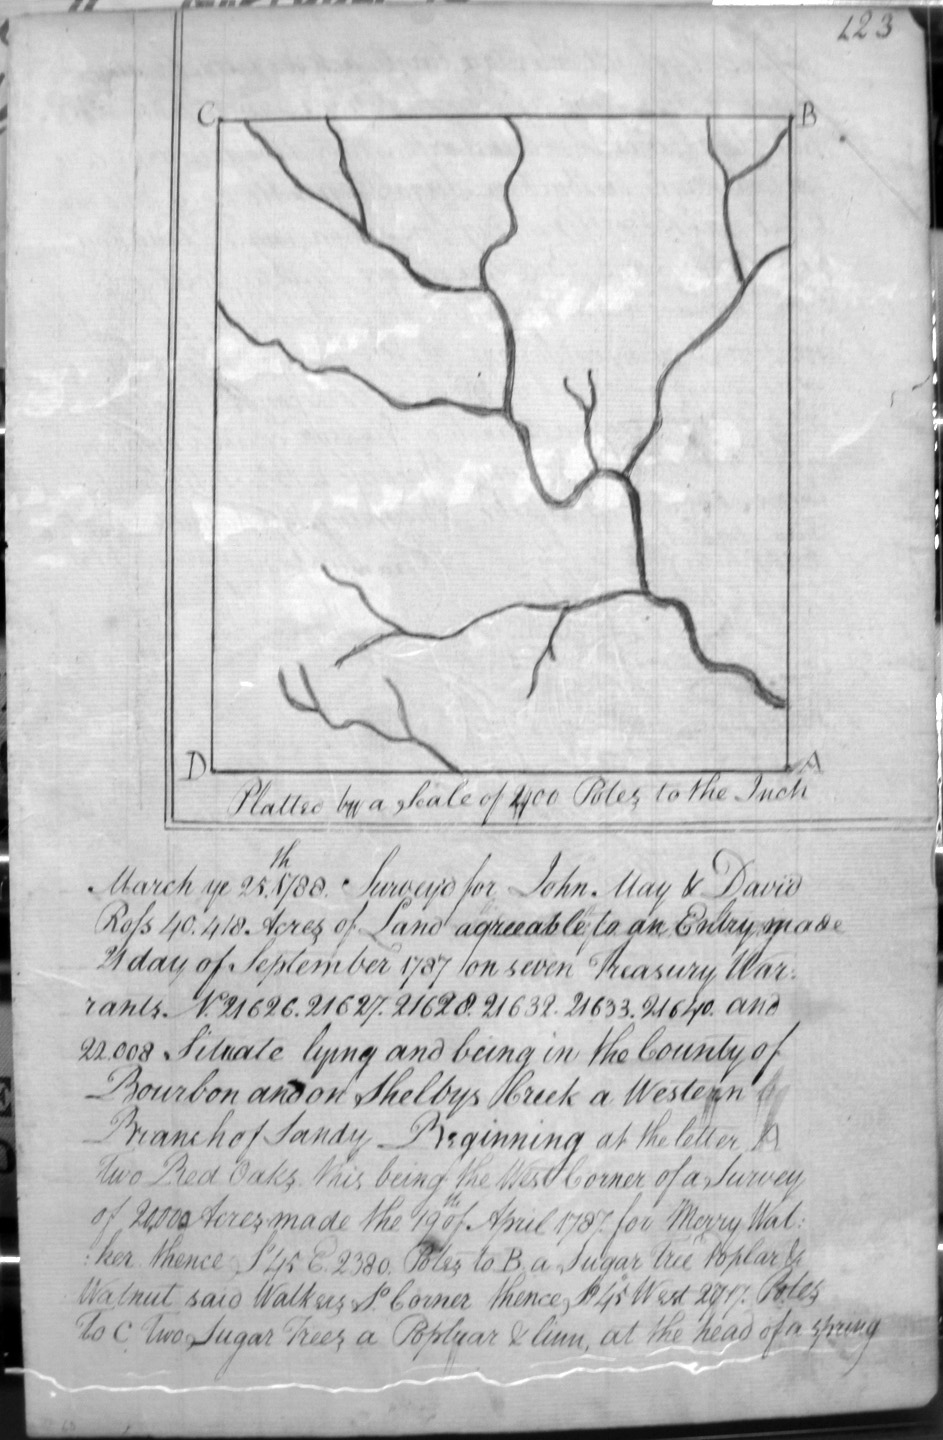 123
C B
D A
Platted by a Scale of 400 Poles to the Inch
March ye 25.th 1788. Survey'd for John May & David
Ross 40.418 Acres of Land agreeable to an Entry made
21 day of September 1787 on seven Treasury War:
rants. No. 21626. 21627. 21628. 21632. 21633. 21640. and
22.008 Situate lying and being in the County of
Bourbon and on Shelbys Creek a Western
Branch of Sandy Beginning at the letter A
two Red Oaks this being the West Corner of a Survey
of 20,000 Acres made the 19th of April 1787 for Merry Wal:
:ker thence S 45 E. 2380. Poles to B a Sugar Tree Poplar &
Walnut said Walkers S. Corner thence S 45 West 2717. Poles
to C two Sugar Trees a Poplyar & linn, at the head of a spring